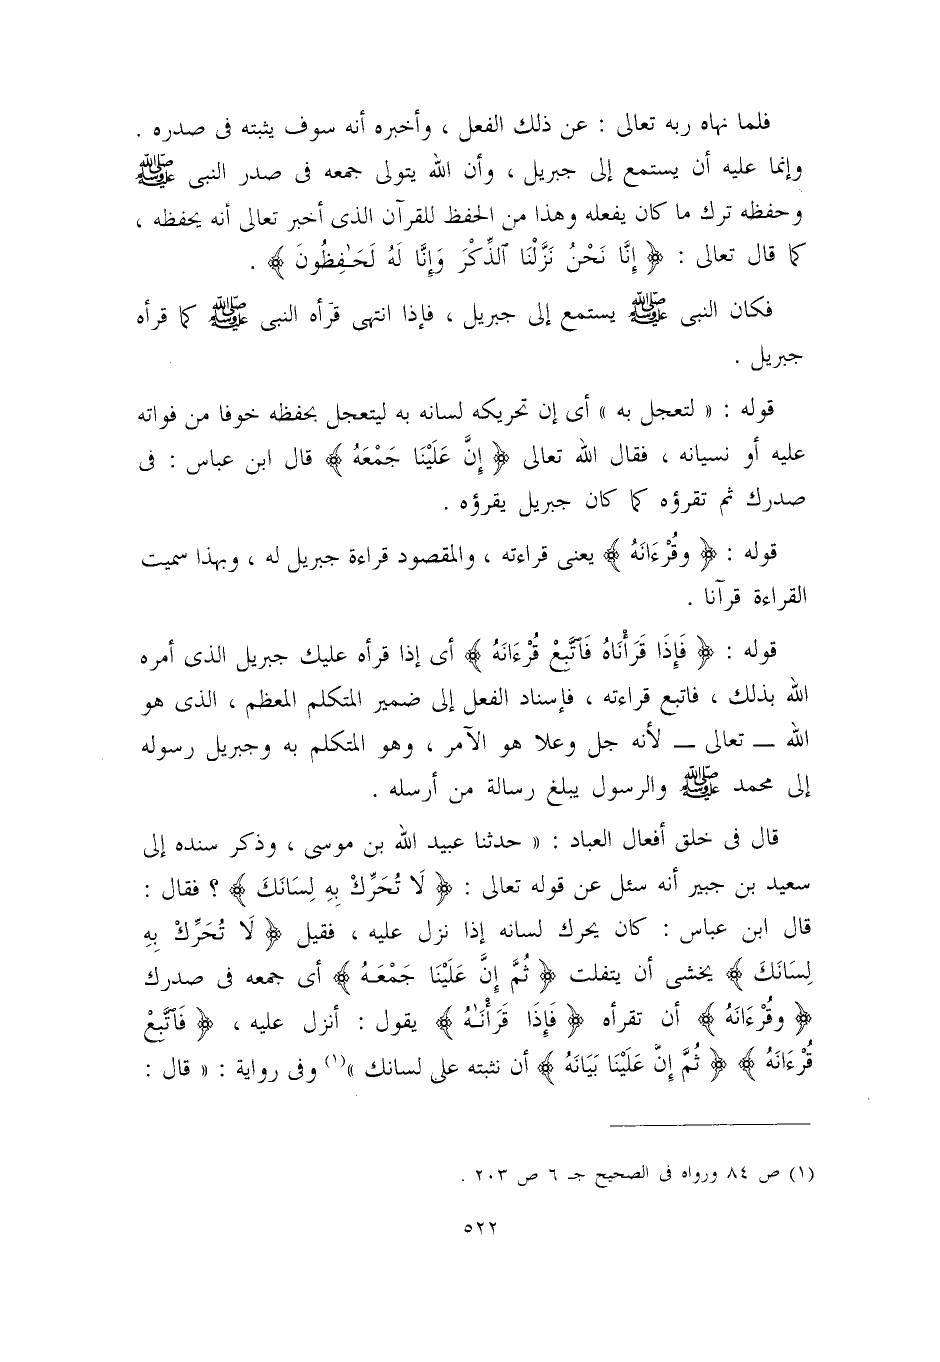 فلما نهاه ربه تعالى : عن ذلك الفعل ، وأخبره أنه سوف يثبته فى صدره .
وإنما عليه أن يستمع إلى جبريل ، وأن الله يتولى جمعه فى صدر النبى ﷺ
وحفظه ترك ما كان يفعله وهذا من الحفظ للقرآن الذى أخبر تعالى أنه يحفظه ،
كما قال تعالى : ﴿ إِنَّا نَحْنُ نَزَّلْنَا ٱلذِّكْرَ وَإِنَّا لَهُ لَحَـٰفِظُونَ ﴾ .
فكان النبى ﷺ يستمع إلى جبريل ، فإذا انتهى قرأه النبى ﷺ كما قرأه
جبريل .
قوله : « لتعجل به » أى إن تحريكه لسانه به ليتعجل بحفظه خوفا من فواته
عليه أو نسيانه ، فقال الله تعالى ﴿ إِنَّ عَلَيْنَا جَمْعَهُ ﴾ قال ابن عباس : فى
صدرك ثم تقرؤه كما كان جبريل يقرؤه .
قوله : ﴿ وقُرْءَانَهُ ﴾ يعنى قراءته ، والمقصود قراءة جبريل له ، وبهذا سميت
القراءة قرآنا .
قوله : ﴿ فَإِذَا قَرَأْنَاهُ فَٱتَّبِعْ قُرْءَانَهُ ﴾ أى إذا قرأه عليك جبريل الذى أمره
الله بذلك ، فاتبع قراءته ، فإسناد الفعل إلى ضمير المتكلم المعظم ، الذى هو
الله ــ تعالى ــ لأنه جل وعلا هو الآمر ، وهو المتكلم به وجبريل رسوله
إلى محمد ﷺ والرسول يبلغ رسالة من أرسله .
قال فى خلق أفعال العباد : « حدثنا عبيد الله بن موسى ، وذكر سنده إلى
سعيد بن جبير أنه سئل عن قوله تعالى : ﴿ لَا تُحَرِّكْ بِهِ لِسَانَكَ ﴾ ؟ فقال :
قال ابن عباس : كان يحرك لسانه إذا نزل عليه ، فقيل ﴿ لَا تُحَرِّكْ بِهِ
لِسَانَكَ ﴾ يخشى أن يتفلت ﴿ ثُمَّ إِنَّ عَلَيْنَا جَمْعَهُ ﴾ أى جمعه فى صدرك
﴿ وقُرْءَانَهُ ﴾ أن تقرأه ﴿ فَإِذَا قَرَأْنَـٰهُ ﴾ يقول : أنزل عليه ، ﴿ فَٱتَّبِعْ
قُرْءَانَهُ ﴾ ﴿ ثُمَّ إِنَّ عَلَيْنَا بَيَانَهُ ﴾ أن نثبته على لسانك »(١) وفى رواية : « قال :
(١) ص ٨٤ ورواه فى الصحيح جـ ٦ ص ٢٠٣ .
٥٢٢